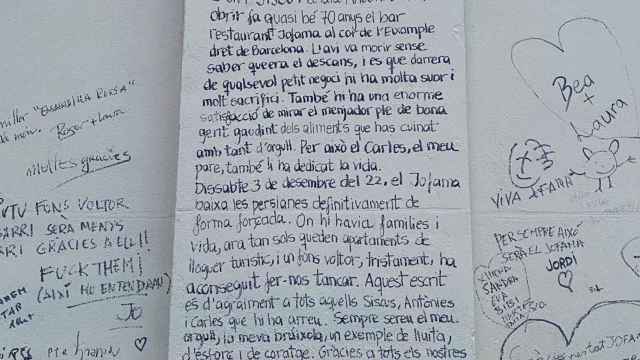 obrir fa quasi bé 70 anys el bar
restaurant Jofama al cor de l'Eixample
dret de Barcelona. L'avi va morir sense
saber que era el descans, i es que darrera
de qualsevol petit negoci hi ha molta suor i
molt sacrifici. També hi ha una enorme
satisfacció de mirar el menjador ple de bona
gent gaudint dels aliments que has cuinat
amb tant d'orgull. Per això el Carles, el meu
pare, també li ha dedicat la vida.
Dissabte 3 de desembre del 22, el Jofama
baixa les persianes definitivament de
forma forçada. On hi havia famílies i
vida, ara tan sols queden apartaments de
lloguer turístic, i un fons voltor, tristament, ha
aconseguit fer-nos tancar. Aquest escrit
es d'agraïment a tots aquells Siscus, Antònies
i Carles que hi ha arreu. Sempre sereu el meu
orgull, la meva brúixola, un exemple de lluita,
d'esforç i de coratge. Gràcies a tots els nostres
Roger + Laura
Moltes gracies
FONS VOLTOR
SERÀ MENYS
GRÀCIES A ELL!!
FUCK THEM!
(AIXÍ HO ENTENDRAN)
Jo
Bea
+
Laura
VIVA JOFAMA
PER SEMPRE AIXÒ
SERÀ EL JOFAMA
JORDI
SANDRA